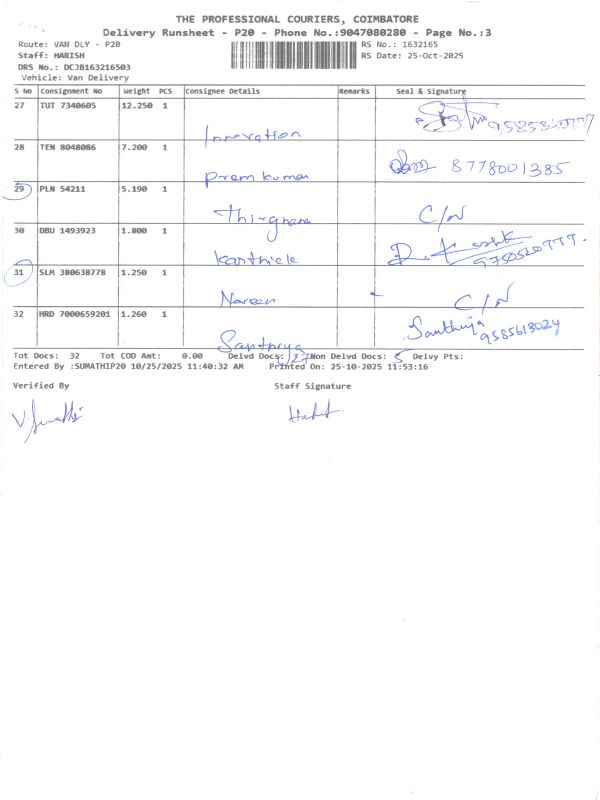 THE PROFESSIONAL COURIERS, COIMBATORE
Delivery Runsheet - P20 - Phone No.:9047080280 - Page No.:3
Route: VAN DLY - P20 RS No.: 1632165
Staff: HARISH RS Date: 25-Oct-2025
DRS No.: DCJ8163216503
Vehicle: Van Delivery
S No Consignment No Weight PCS Consignee Details Remarks Seal & Signature
27 TUT 7340605 12.250 1
Innovation
28 TEN 8048086 7.200 1 8778001385
Prem kumar
29 PLN 54211 5.190 1
C/N
30 DBU 1493923 1.800 1
Karthick 9750520777
31 SLM 380638778 1.250 1
Nareen C/N
32 HRD 7000659201 1.260 1 Santhiya
9585613024
Santhiya
Tot Docs: 32 Tot COD Amt: 0.00 Delvd Docs: 27 Non Delvd Docs: 5 Delvy Pts:
Entered By :SUMATHIP20 10/25/2025 11:40:32 AM Printed On: 25-10-2025 11:53:16
Verified By Staff Signature